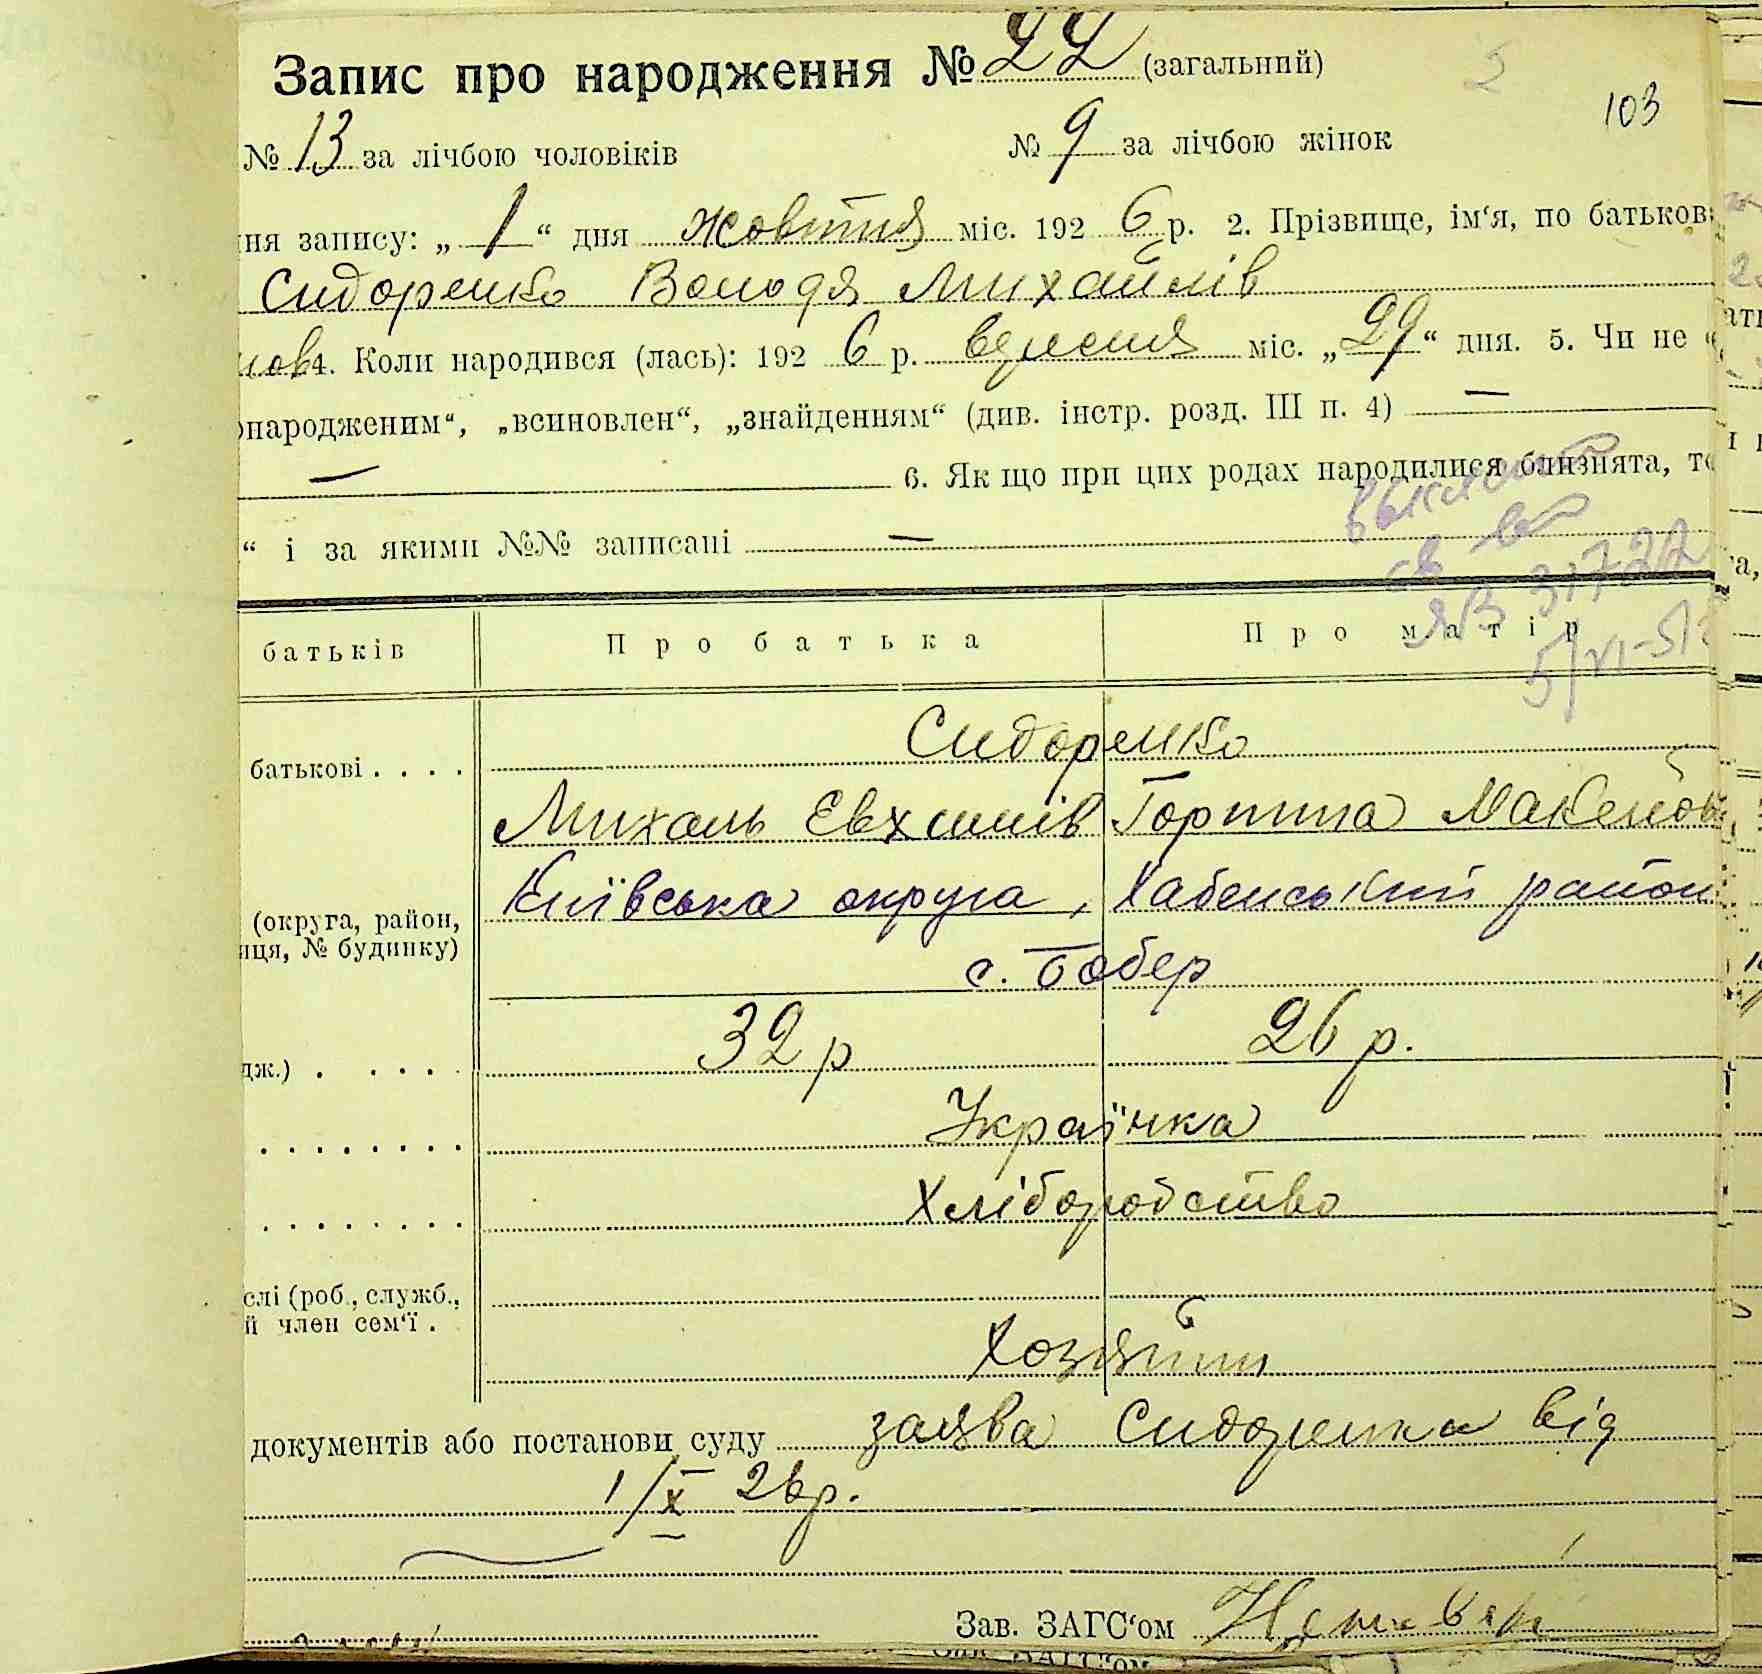 Запис про народження № 22 (загальний)
5
103
№ 13 за лічбою чоловіків № 9 за лічбою жінок
ня запису: „ 1 “ дня жовтня міс. 192 6 р. 2. Прізвище, ім‘я, по батькові
Сидоренко Володя Михайлів
4. Коли народився (лась): 192 6 р. вересня міс. „29“ дня. 5. Чи не
народженим“, „всиновлен“, „знайденням“ (див. інстр. розд. III п. 4) —
— 6. Як що при цих родах народилися близнята, то
“ і за якими №№ записані —
св
ЯВ 31722
5/VI-51
батьків Про батька Про матір
батькові . . . . Сидоренко
Михаль Евхимів Горпина
(округа, район, Київська округа, Хабенський район
иця, № будинку)
с. Бобер
дж.) . . . . . 32 р 26 р.
Українка
Хлібородство
слі (роб., служб.,
й член сем‘ї .
Хозяїн
документів або постанови суду заява Сидоренка від
1/X 26р.
Зав. ЗАГС‘ом